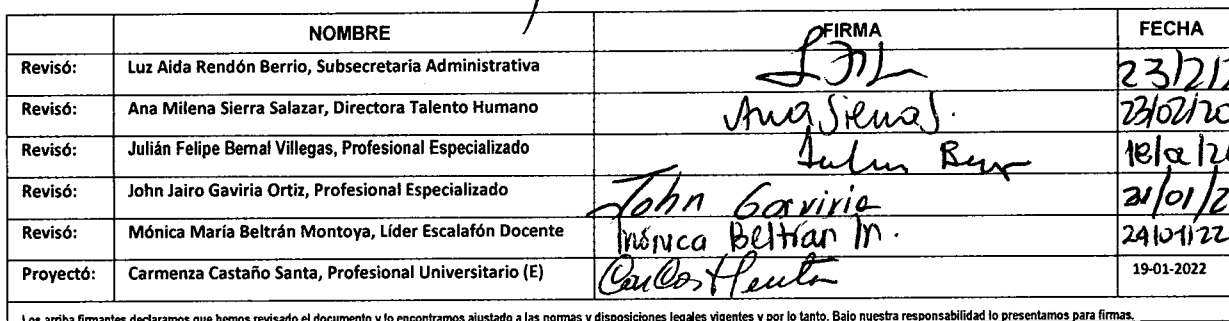 NOMBRE FIRMA FECHA
Revisó: Luz Aida Rendón Berrio, Subsecretaria Administrativa 23/2/2
Revisó: Ana Milena Sierra Salazar, Directora Talento Humano Ana Sierra S. 23/02/20
Revisó: Julián Felipe Bernal Villegas, Profesional Especializado
Revisó: John Jairo Gaviria Ortiz, Profesional Especializado John Gaviria /01/2
Revisó: Mónica María Beltrán Montoya, Líder Escalafón Docente Mónica Beltrán M. 24/01/22
Proyectó: Carmenza Castaño Santa, Profesional Universitario (E) 19-01-2022
Los arriba firmantes declaramos que hemos revisado el documento y lo encontramos ajustado a las normas y disposiciones legales vigentes y por lo tanto, Bajo nuestra responsabilidad lo presentamos para firmas.